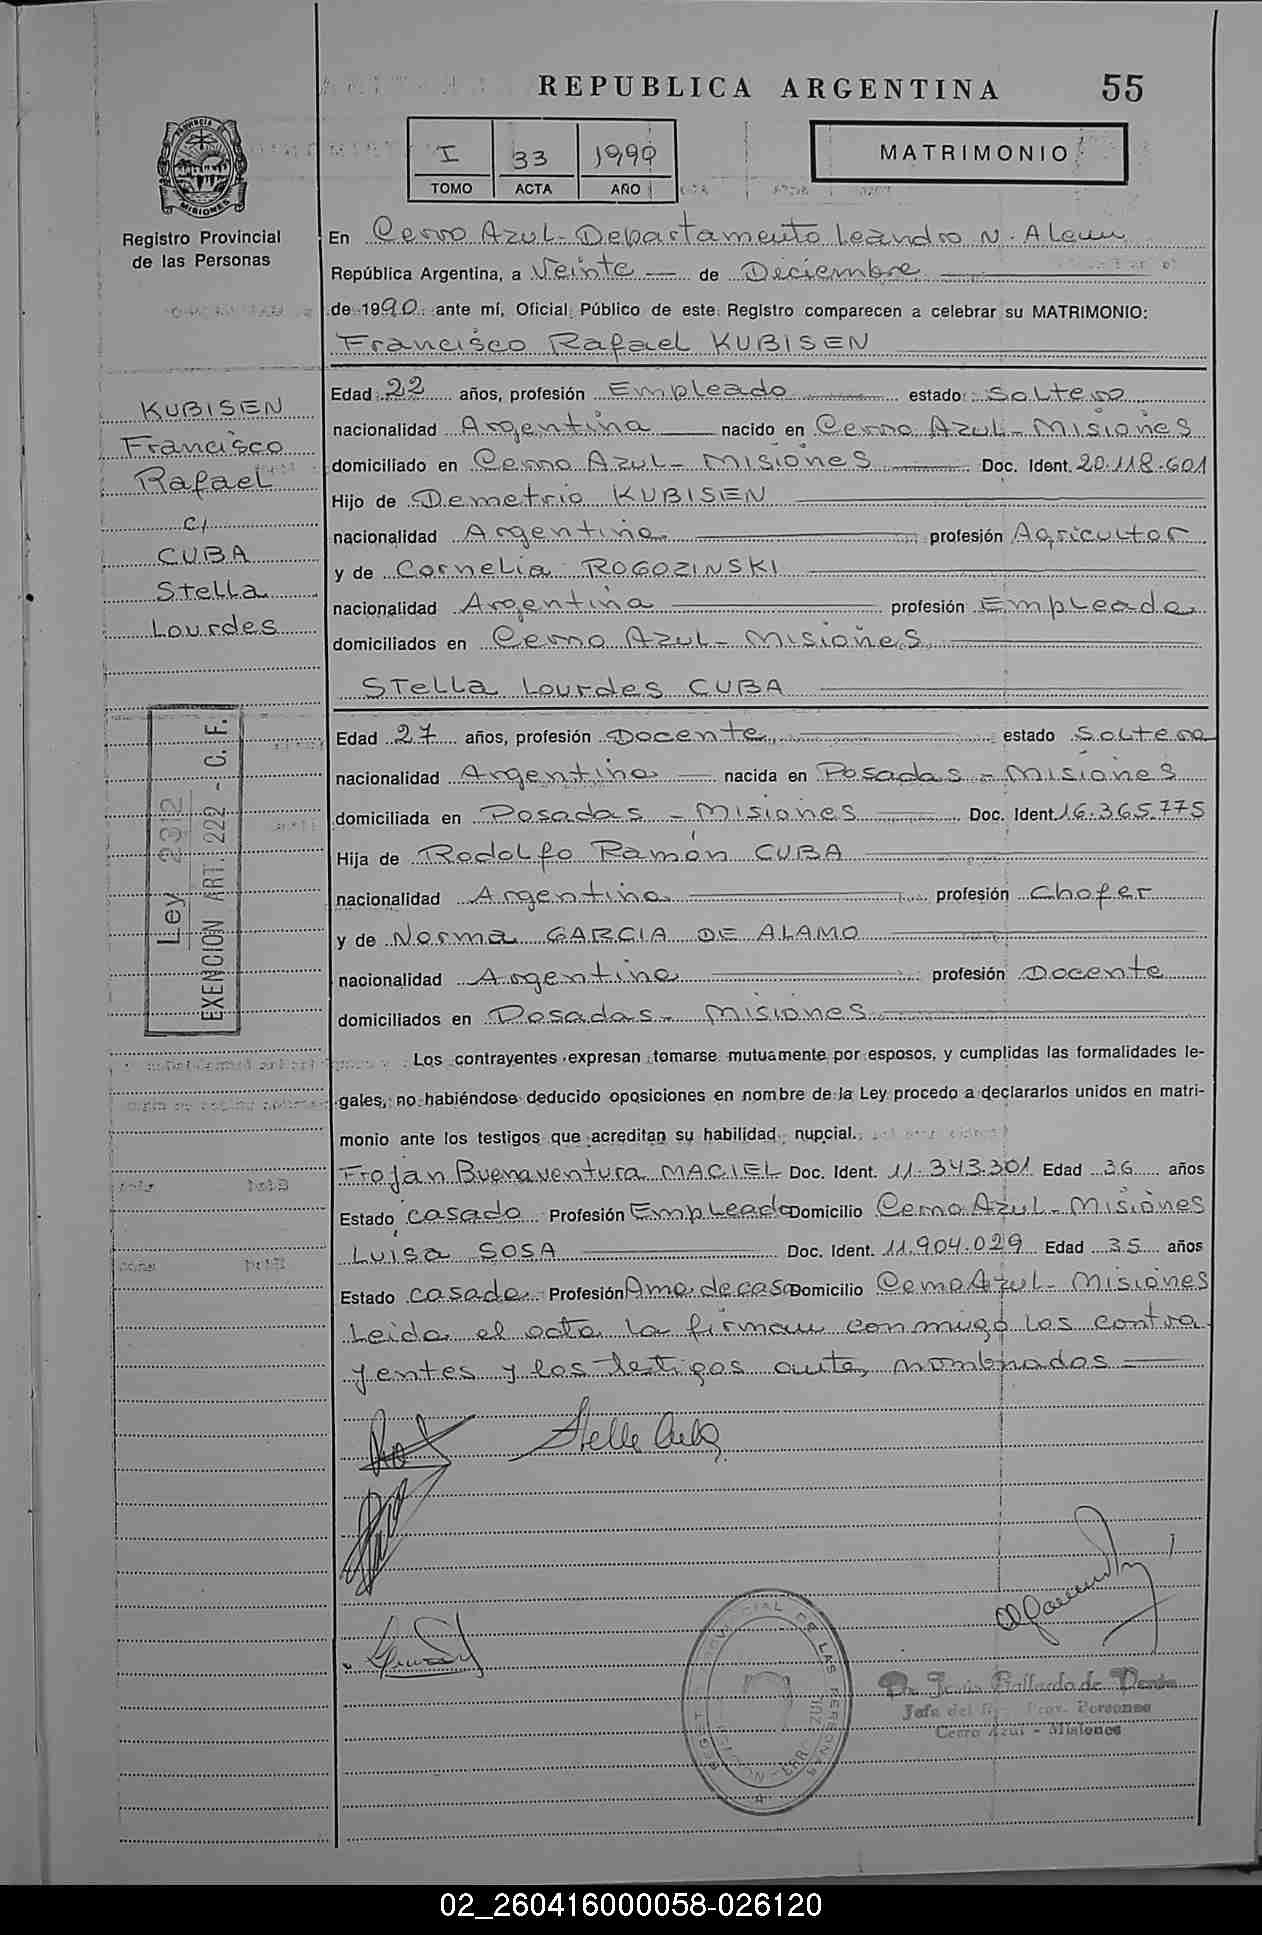 REPUBLICA ARGENTINA 55
I 33 1990
TOMO ACTA AÑO
MATRIMONIO
PROVINCIA DE MISIONES
Registro Provincial
de las Personas
En Cerro Azul - Departamento Leandro N. Alem
República Argentina, a Veinte de Diciembre
de 1990 ante mí, Oficial Público de este Registro comparecen a celebrar su MATRIMONIO:
Francisco Rafael KUBISEN
KUBISEN
Francisco
Rafael
c/
CUBA
Stella
Lourdes
Edad 22 años, profesión Empleado estado Soltero
nacionalidad Argentina nacido en Cerro Azul - Misiones
domiciliado en Cerro Azul - Misiones Doc. Ident. 20.118.601
Hijo de Demetrio KUBISEN
nacionalidad Argentina profesión Agricultor
y de Cornelia ROGOZINSKI
nacionalidad Argentina profesión Empleada
domiciliados en Cerro Azul - Misiones
Stella Lourdes CUBA
Ley 2312
EXENCION ART. 222 - C. F.
Edad 27 años, profesión Docente estado Soltera
nacionalidad Argentina nacida en Posadas - Misiones
domiciliada en Posadas - Misiones Doc. Ident. 16.365.775
Hija de Rodolfo Ramón CUBA
nacionalidad Argentina profesión Chofer
y de Norma GARCIA DE ALAMO
nacionalidad Argentina profesión Docente
domiciliados en Posadas - Misiones
Los contrayentes expresan tomarse mutuamente por esposos, y cumplidas las formalidades le-
gales, no habiéndose deducido oposiciones en nombre de la Ley procedo a declararlos unidos en matri-
monio ante los testigos que acreditan su habilidad nupcial.
Froján Buenaventura MACIEL Doc. Ident. 11.343.301 Edad 36 años
Estado casado Profesión Empleado Domicilio Cerro Azul - Misiones
Luisa SOSA Doc. Ident. 11.904.029 Edad 35 años
Estado casada Profesión Ama de casa Domicilio Cerro Azul - Misiones
Leida el acta la firman conmigo los contra
yentes y los testigos ante nombrados
Stella Cuba
REGISTRO PROVINCIAL DE LAS PERSONAS
CERRO AZUL - MISIONES
Jesús Gallardo de
Jefa del Reg. Prov. Personas
Cerro Azul - Misiones
02_260416000058-026120